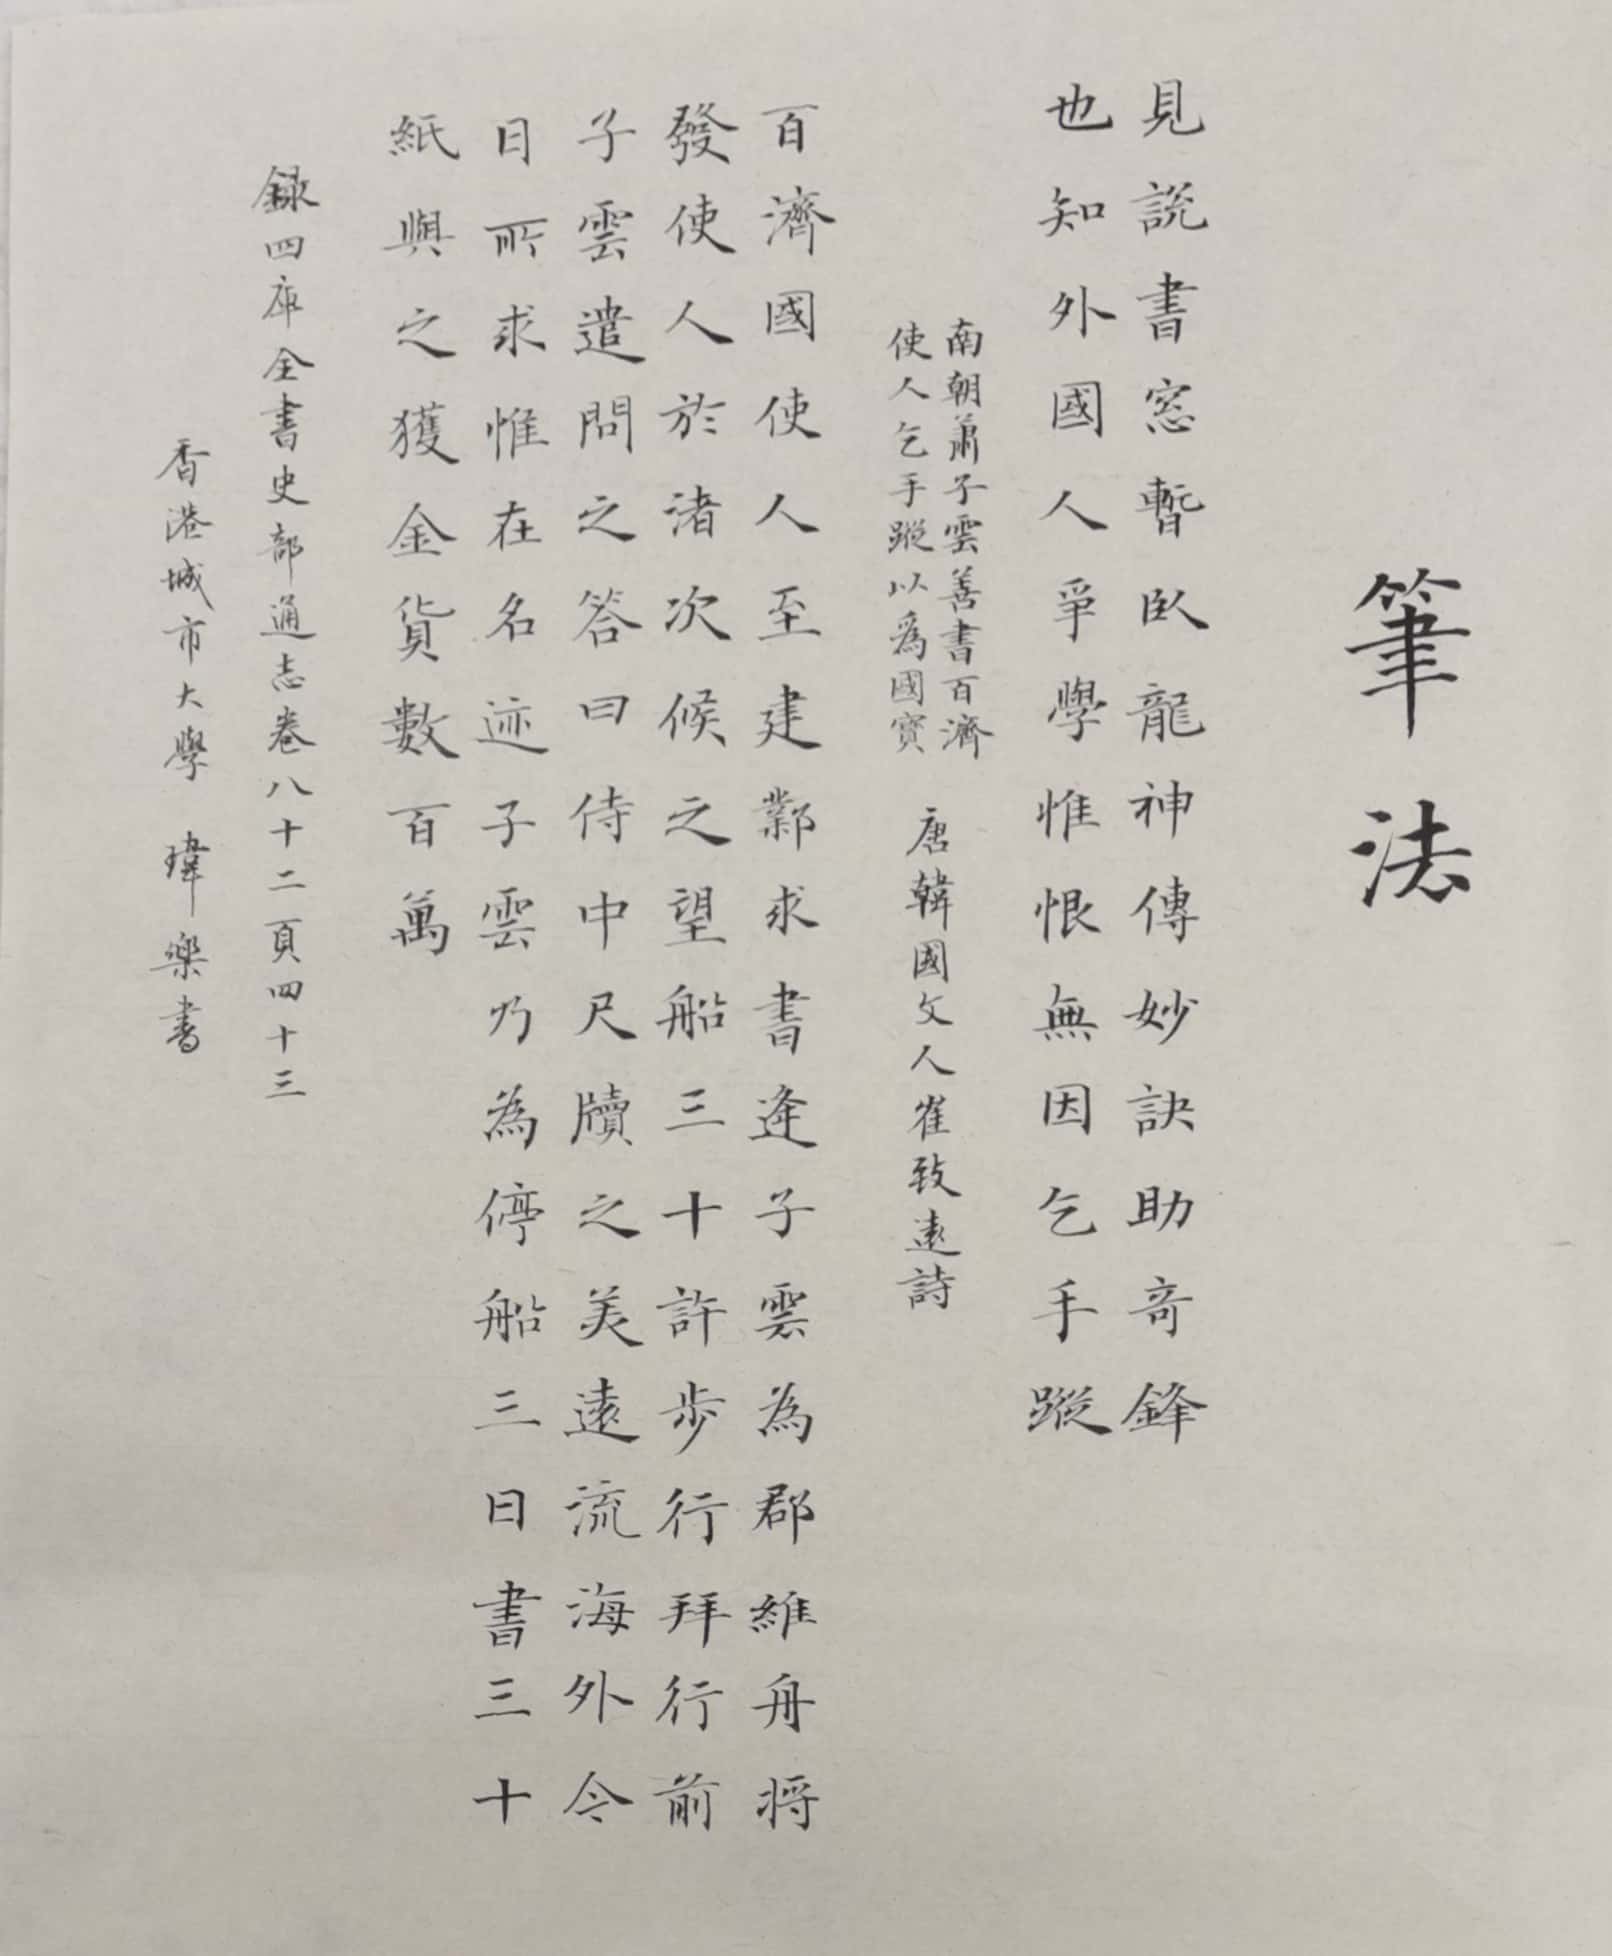 筆法
見說書窓暫臥龍神傳妙訣助奇鋒
也知外國人爭學惟恨無因乞手蹤
南朝蕭子雲善書百濟
使人乞手蹤以爲國寶
唐韓國文人崔致遠詩
百濟國使人至建鄴求書逢子雲為郡維舟將
發使人於渚次候之望船三十許步行拜行前
子雲遣問之答曰侍中尺牘之美遠流海外今
日所求惟在名迹子雲乃為停船三日書三十
紙與之獲金貨數百萬
録四库全書史部通志卷八十二頁四十三
香港城市大學 瑋樂書